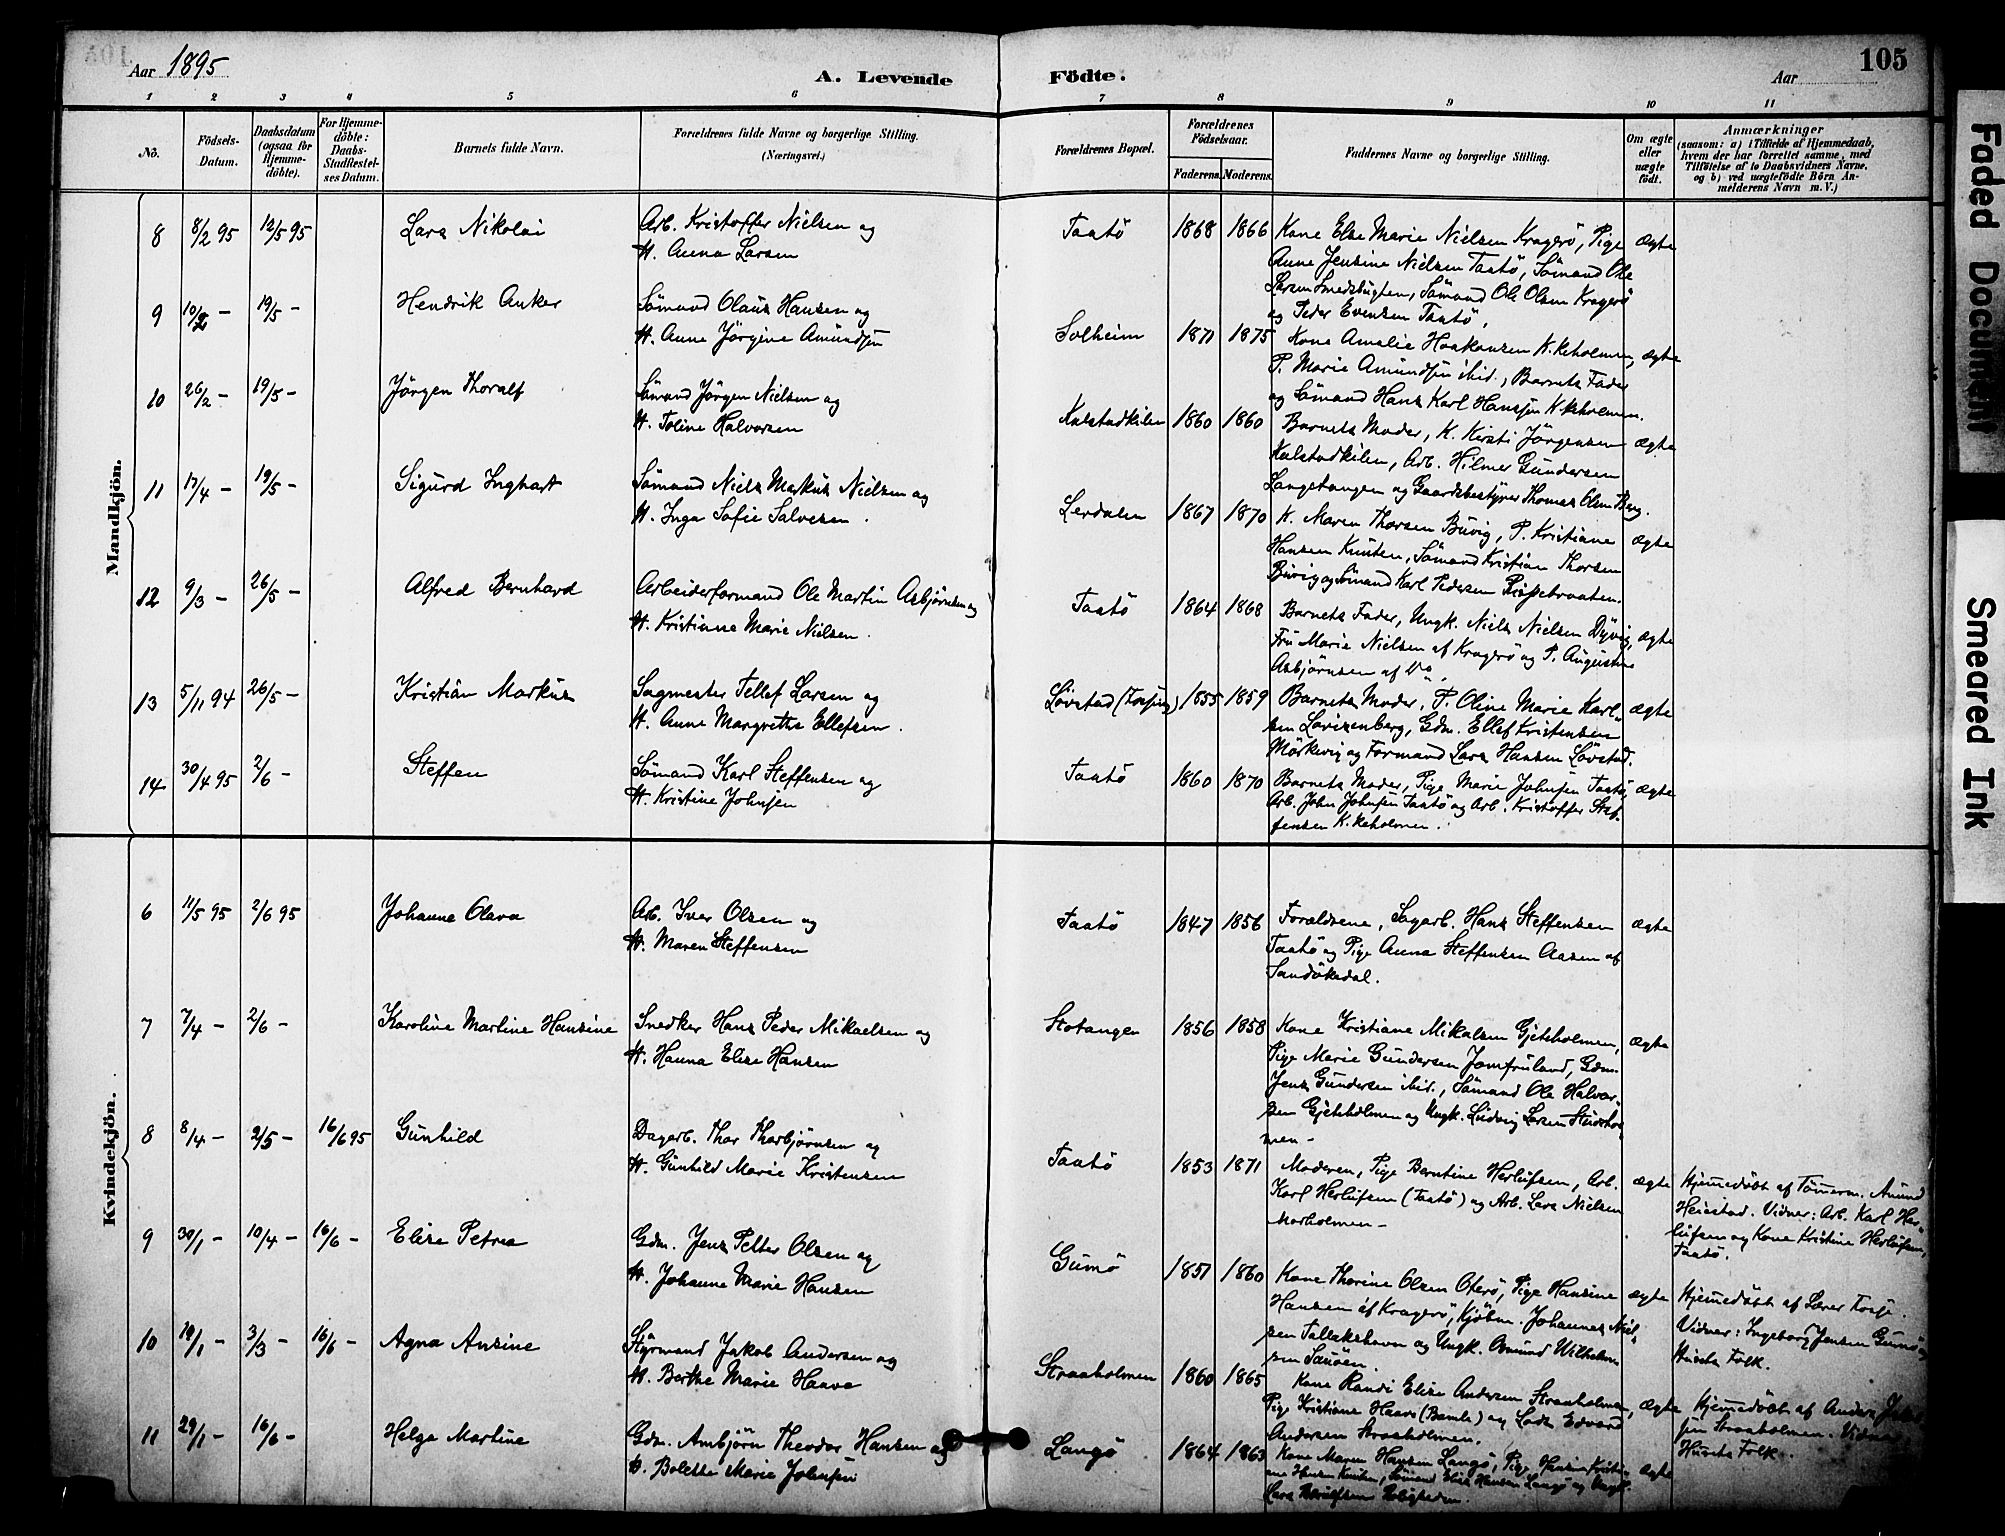 Aar 1895
A. Levende Födte.
Aar
105
1 2 3 4 5 6 7 8 9 10 11
No.
Födsels-Datum.
Daabsdatum (ogsaa for Hjemme-döbte).
For Hjemme-döbte: Daabs-Stadfæstel-ses Datum.
Barnets fulde Navn.
Forældrenes fulde Navne og borgerlige Stilling.
(Næringsvei.)
Forældrenes Bopæl.
Forældrenes Födselsaar.
Faderens. Moderens.
Faddernes Navne og borgerlige Stilling.
Om ægte eller uægte födt.
Anmærkninger
(saasom: a) i Tilfælde af Hjemmedaab,
hvem der har forrettet samme, med
Tilföielse af to Daabsvidners Navne,
og b) ved uægtefödte Börn An-
melderens Navn m. V.)
Mandkjön.
8 8/2 95 12/5 95 Lars Nikolai Arb. Kristoffer Nielsen og
H. Anna Larsen
Taatö 1868 1866 Kone Else Marie Nielsen Kragerö, Pige ægte
Anne Jensine Nielsen Taatö, Sömand Ole
Larsen Smedsbugten, Sömand Ole Olsen Kragerö
og Peder Evensen Taatö.
9 10/2 - 19/5 - Hendrik Anker Sömand Olaus Hansen og
H. Anne Jörgine Amundsen
Solheim 1871 1875 Kone Amalie Haakonsen K.keholmen, ægte
P. Marie Amundsen ibid., Barnets Fader
og Sömand Hans Karl Hansen K.keholmen.
10 26/2 - 19/5 - Jörgen Thoralf Sömand Jörgen Nielsen og
H. Toline Halvorsen
Kalstadkilen 1860 1860 Barnets Moder, K. Kirsti Jörgensen ægte
Kalstadkilen, Arb. Hilmer Gundersen
Langetangen og Gaardsbestyrer Thomas Olsen Berg.
11 17/4 - 19/5 - Sigurd Inghart Sömand Niels Markus Nielsen og
H. Inga Sofie Salvesen.
Lerdalen 1867 1870 K. Maren Thorsen Buvig, P. Kristiane ægte
Hansen Knuten, Sömand Kristian Thorsen
Buvig og Sömand Karl Pedersen
12 9/3 - 26/5 - Alfred Bernhard Arbeiderformand Ole Martin Asbjörnsen og
H. Kristiane Marie Nielsen.
Taatö 1864 1868 Barnets Fader, Ungk. Niels Nielsen Dyvig, ægte
Fru Marie Nielsen af Kragerö og P. Augustine
Asbjörnsen af Do.
13 5/11 94 26/5 - Kristian Markus Sagmester Tellef Larsen og
H. Anne Margrethe Ellefsen.
Lövstad 1855 1859 Barnets Moder, P. Oline Marie Karl- ægte
sen Lovisenberg, Gdm. Ellef Kristensen
Mörkevig og Formand Lars Hansen Lövstad.
14 30/4 95 2/6 - Steffen Sömand Karl Steffensen og
H. Kristine Johnsen
Taatö 1860 1870 Barnets Moder, Pige Marie Johnsen Taatö, ægte
Arb. John Johnsen Taatö og Arb. Kristoffer Stef-
fensen K.keholmen.
Kvindekjön.
6 11/5 95 2/6 95 Johanne Olava Arb. Iver Olsen og
H. Maren Steffensen
Taatö 1847 1856 Forældrene, Sagarb. Hans Steffensen ægte
Taatö og Pige Anna Steffensen Aasen af
Sandökedal.
7 7/4 - 2/6 - Karoline Martine Hansine Snedker Hans Peder Mikaelsen og
H. Hanna Elise Hansen
Stotangen 1856 1858 Kone Kristiane Mikalsen Gjeteholmen, ægte
Pige Marie Gundersen Jomfruland, Gdm.
Jens Gundersen ibid., Sömand Ole Halvor-
sen Gjeteholmen og Ungk. Ludvig Larsen
men -
8 8/4 - 2/5 - 16/6 95 Gunhild Dagarb. Thor Thorbjörnsen og
H. Gunhild Marie Kristensen
Taatö 1853 1871 Moderen, Pige Berntine Herlufsen, Arb. ægte
Karl Herlufsen (Taatö) og Arb. Lars Nielsen
Morholmen -
Hjemmedöbt af Tömmerm. Amund
Heiestad. Vidner: Arb. Karl Her-
lufsen og Kone Kristine Herlufsen,
Taatö.
9 30/1 - 10/4 - 16/6 - Elise Petrea Gdm. Jens Petter Olsen og
H. Johanne Marie Hansen
Gumö 1851 1860 Kone Thorine Olsen Oterö, Pige Hansine ægte
Hansen af Kragerö, Kjöbm. Johannes Niel-
sen Tallakshavn og Ungk. Amund Wilhelm-
sen
Hjemmedöbt af Lærer
Vidner: Ingeborg Jensen Gumö og
Husets Folk.
10 19/1 - 3/3 - 16/6 - Agna Ansine Styrmand Jakob Andersen og
H. Berthe Marie Haave
Straaholmen 1860 1865 Kone Randi Elise Andersen Straaholmen, ægte
Pige Kristiane Haave (Bamle) og Lods Edvard
Andersen Straaholmen.
Hjemmedöbt af Anders
sen Straaholmen. Vidner
Husets Folk.
11 29/1 - 16/6 - Helga Martine Gdm. Ambjörn Theodor Hansen og
H. Bolette Marie Johnsen
Langö 1864 1863 Kone Maren Hansen Langö, Pige Hansine Kristi- ægte
ne Hansen Knuten, Sömand Elias Hansen Langö og Ungk.
Lars
Faded Document
Smeared Ink